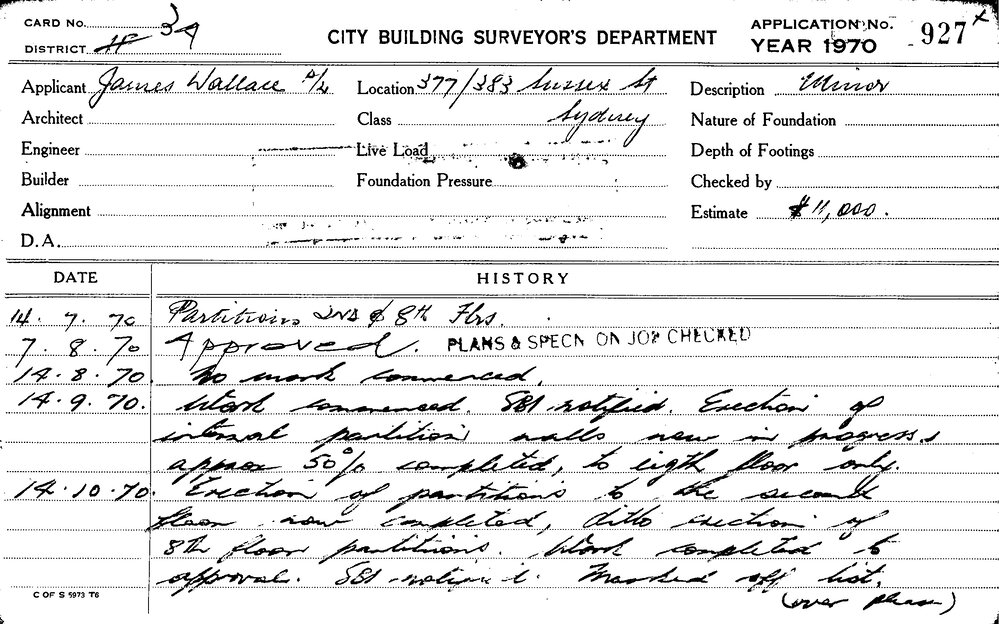 CARD No. 34
DISTRICT H
CITY BUILDING SURVEYOR'S DEPARTMENT
APPLICATION No. 927 x
YEAR 1970
Applicant James Wallace P/L
Location 377/383 Sussex St
Description Minor
Architect
Class Sydney
Nature of Foundation
Engineer
Live Load
Depth of Footings
Builder
Foundation Pressure
Checked by
Alignment
Estimate $11,000.
D.A.
DATE HISTORY
14. 7. 70 Partitions 2nd & 8th Flrs.
7. 8. 70 Approved. PLANS & SPECN ON JOB CHECKED
14. 8. 70. No work commenced.
14. 9. 70. Work commenced. SBI notified. Erection of
internal partition walls now in progress
approx 50% completed, to eigth floor only.
14. 10. 70. Erection of partitions to the second
floor now completed, ditto erection of
8th floor partitions. Work completed to
approval. SBI notified. Marked off list.
(over please)
C OF S 5973 T6